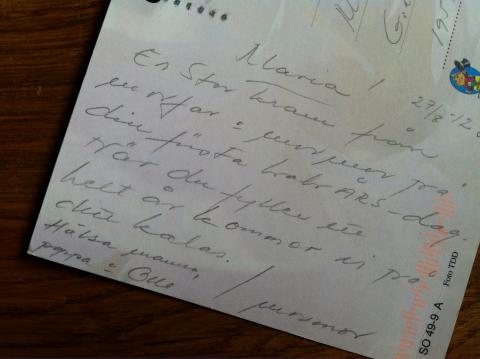 Maria !
27/8-12
En stor kram från
morfar o mormor på
din första halvÅRS-dag.
När du fyller ett
helt år kommer vi på
ditt kalas.
Hälsa mamma,
pappa o
/ mormor
SO 49-9 A Foto TDD
195